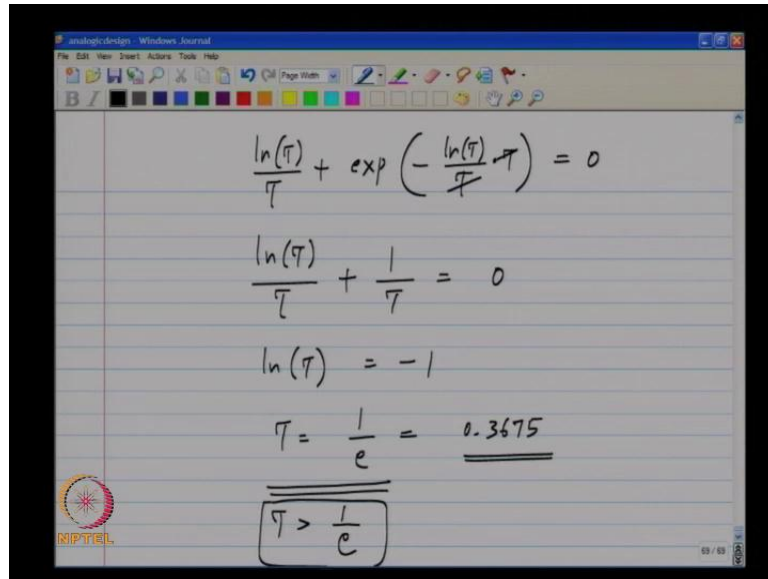 analogicdesign - Windows Journal
File Edit View Insert Actions Tools Help
Page Width
B I
ln(T)/T + exp(- ln(T)/T · T) = 0
ln(T)/T + 1/T = 0
ln(T) = -1
T = 1/e = 0.3675
T > 1/e
NPTEL
69 / 69